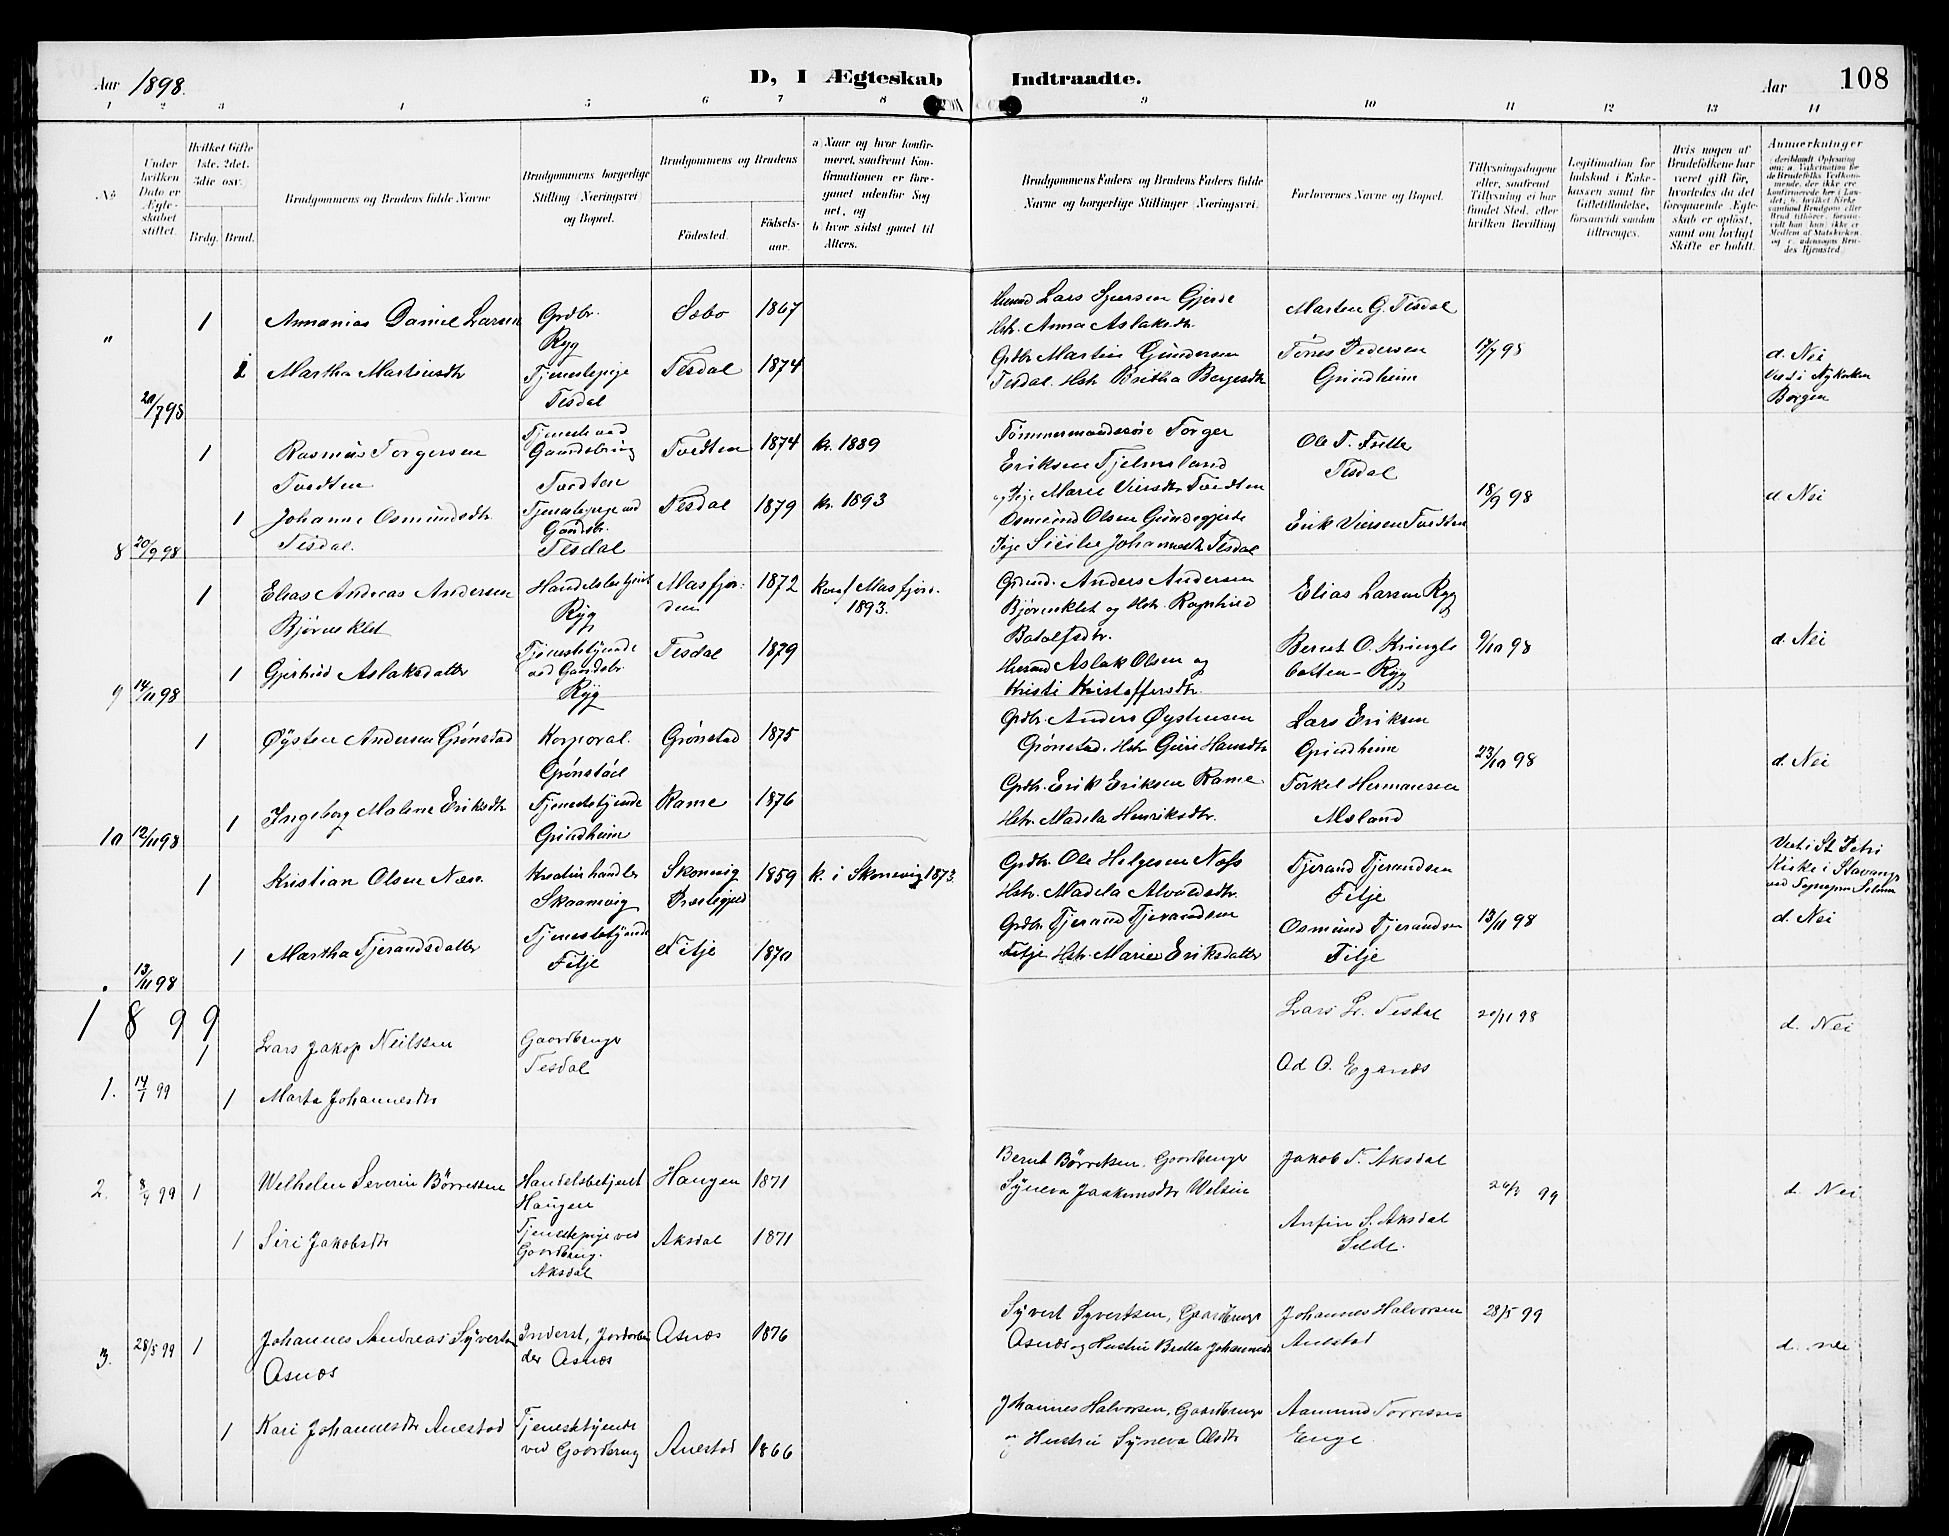 Aar 1898.
D, I Ægteskab Indtraadte.
Aar 108
1 2 3 4 5 6 7 8 9 10 11 12 13 14
No
Under hvilken Dato er Ægteskabet stiftet.
Hvilket Gifte 1ste, 2det, 3die osv.
Brdg. Brud.
Brudgommens og Brudens fulde Navne
Brudgommens borgerlige Stilling (Næringsvei) og Bopæl.
Brudgommens og Brudens
Fødested. Fødselsaar.
a) Naar og hvor konfirmeret, saafremt Konfirmationen er foregaaet udenfor Sognet, og
b) hvor sidst gaaet til Alters.
Brudgommens Faders og Brudens Faders fulde Navne og borgerlige Stillinger (Næringsvei).
Forlovernes Navne og Bopæl.
Tillysningsdagene eller, saafremt Tillysning ei har fundet Sted, efter hvilken Bevilling
Legitimation for Indskud i Enkekassen samt for Giftetilladelse, forsaavidt saadan tiltrænges.
Hvis nogen af Brudefolkene har været gift før, hvorledes da det foregaaende Ægteskab er opløst, samt om lovligt Skifte er holdt.
Anmerkninger
" 20/7 98 1 Annanias Daniel Larsen Grdbr. Ryg Sæbo 1867
Lars Sjursen Gjerde
Hstr. Anna Aslaksdtr
Marten G. Tesdal
1 Martha Martinsdtr Tjenestepige Tesdal Tesdal 1874
Grdbr Martin Gundersen
Tesdal. Hstr Britha Bergesdtr
Tönes Pedersen
Grindheim
17/7 98
d. Nei
Viet i Nykirken
Bergen
8 20/9 98 1 Rasmus Torgersen
Tvedten
Tjeneste ved
Gaardsbrug
Tvedten
Tvedten 1874 k. 1889
Torger
Eriksen Tjelmeland
og Pige Marie Viersdtr Tvedten
Ole T.
Tesdal
1 Johanne Osmundsdtr.
Tesdal.
Tjenestepige ved
Gaardsbr.
Tesdal
Tesdal 1879 k. 1893
Osmund Olsen Gundegjerde
Pige Sicilie Johannesdtr Tesdal
Erik Viersen Tvedten
18/9 98
d. Nei
9 14/11 98 1 Elias Andreas Andersen
Bjørnesklet
Handelsbetjent
Ryg
Masfjorden 1872 konf Masfjord.
1893.
Grdmd. Anders Andersen
Bjørnesklet og Hstr. Ragnhild
Botolfsdtr.
Elias Larsen Ryg
1 Gjertrud Aslaksdatter
Tjenestetjende
ved Gaardsbr.
Ryg
Tesdal 1879
Husmd Aslak Olsen og
Kristi Kristoffersdtr.
Bernt O. Kringle
botten - Ryg
9/10 98
d. Nei
10 12/11 98 1 Øysten Andersen Grønstad Korporal.
Grønstad
Grønstad 1875
Grdbr. Anders Øystensen
Grønstad. Hstr Guri Hansdtr
Lars Eriksen
Grindheim
23/10 98
d. Nei
1 Ingeborg Malene Eriksdtr Tjenestetjende
Grindheim
Rame 1876
Grdbr. Erik Eriksen Rame
Hstr. Madela Henriksdtr.
Torkel Hermansen
Mæland
13/11 98 1 Kristian Olsen Næs. Kreaturhandler
Skaanevig
Skonevig
Præstegjeld
1859 k. i Skonevig 1873.
Grdbr. Ole Helgesen Næss
Hstr. Madela Alvoldsdtr.
Tjerand Tjerandsen
Fitje
Viet i St. Petri
Kirke i Stavanger
1 Martha Tjerandsdatter Tjenestetjende
Fitje
Fitje 1870
Grdbr Tjerand Tjerandsen
Fitje Hstr. Marie Eriksdatter
Osmund Tjerandsen
Fitje
13/11 98
d. Nei
1899
1. 14/1 99 1 Lars Jakop Neilssen Gaardbruger
Tesdal
Lars L. Tesdal
20/11 98
d. Nei
1 Marta Johannesdtr
Od O. Egenæs
2. 8/4 99 1 Welhelm Severin Börretsen Handelsbetjent
Haugen
Haugen 1871
Bernt Børretsen. Gaardbruger
Syneva Jaakumsdtr
Jakob T. Aksdal
99
d. Nei
1 Siri Jakobsdtr Tjenestepige ved
Gaardbrug.
Aksdal
Aksdal 1871
Anfin S. Aksdal
Selde.
3. 28/5 99 1 Johannes Andreas Syvertsen
Osnæs
Inderst, Jordarbei
der Osnæs
Osnæs 1876
Syvert Syvertsen, Gaardbruger
Osnæs og Hustru Britta Johannesdtr
Johannes Halvorsen
Anestad
28/5 99
d. nei
1 Kari Johannesdtr Anestad Tjenestetjende
ved Gaardbrug
Anestad 1866
Johannes Halvorsen, Gaardbruger
og Hustru Syneva Olsdtr
Aamund Torresen
Enge